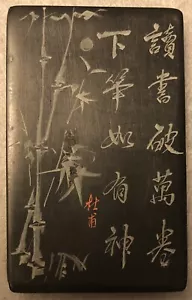 讀書破萬卷
下筆如有神
杜甫